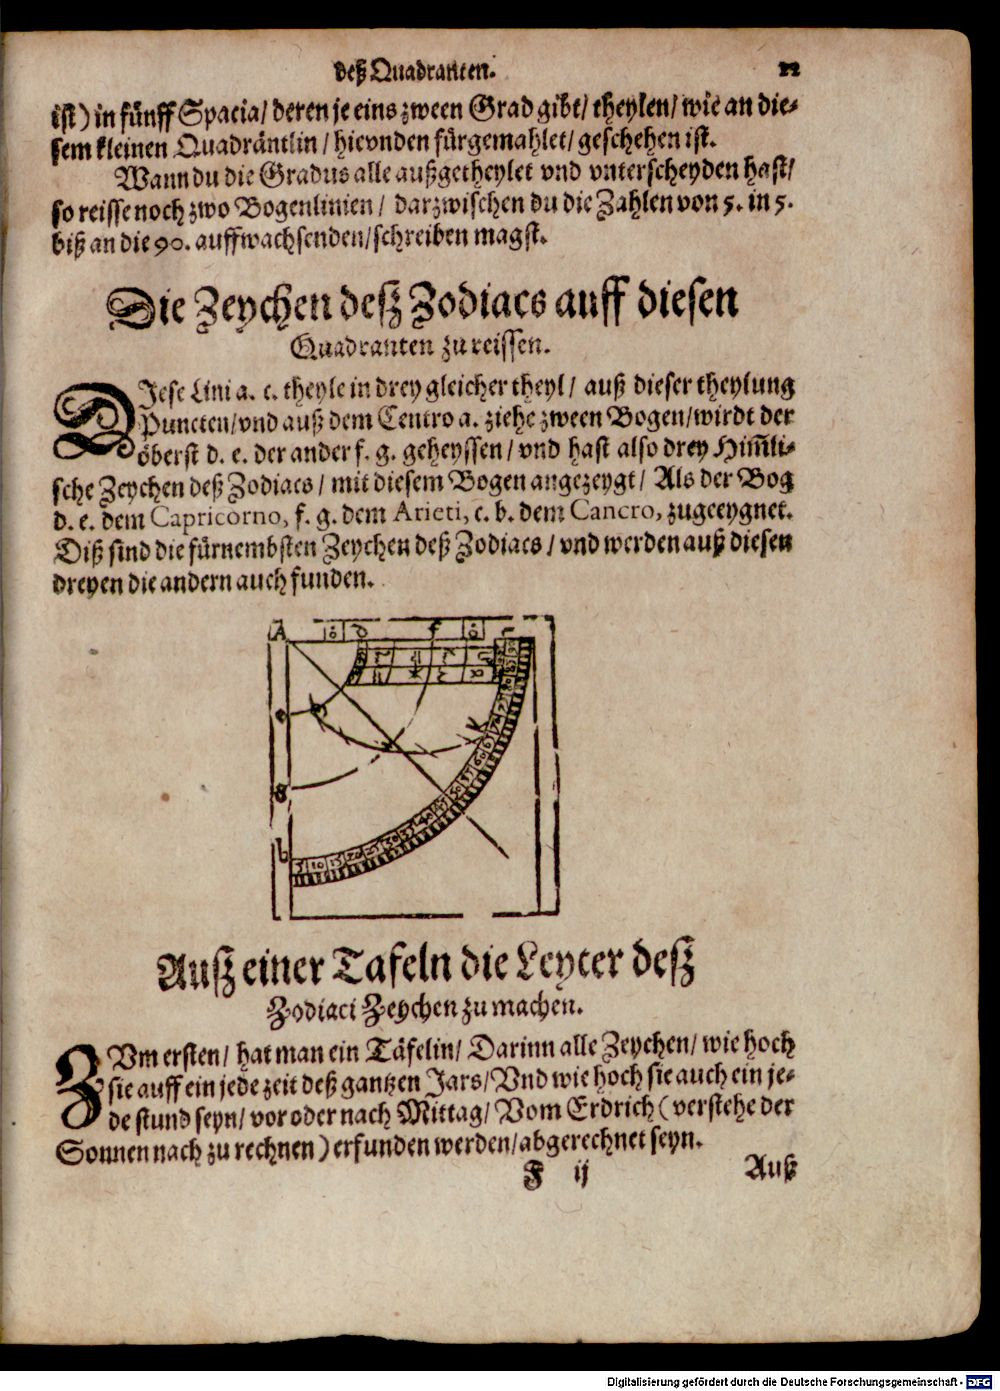 deß Quadranten. 22
ist) in fünff Spacia/ deren je eins zween Grad gibt/ theylen/ wie an die-
sem kleinen Quadräntlin/ hievnden fürgemahlet/ geschehen ist.
Wann du die Gradus alle außgetheylet vnd vnterscheyden hast/
so reisse noch zwo Bogenlinien/ darzwischen du die Zahlen von 5. in 5.
biß an die 90. auffwachsenden/ schreiben magst.
Die Zeychen deß Zodiacs auff diesen
Quadranten zu reissen.
DIese Lini a. c. theyle in drey gleicher theyl/ auß dieser theylung
Puncten/ vnd auß dem Centro a. ziehe zween Bogen/ wirdt der
öberst d. e. der ander f. g. geheyssen/ vnd hast also drey Him̃li-
sche Zeychen deß Zodiacs/ mit diesem Bogen angezeygt/ Als der Bog
d. e. dem Capricorno, f. g. dem Arieti, c. b. dem Cancro, zugeeygnet.
Diß sind die fürnembsten Zeychen deß Zodiacs/ vnd werden auß diesen
dreyen die andern auch funden.
A d f c
e
g
b
5 10 15 20 25 30 35 40 45 50
Auß einer Tafeln die Leyter deß
Zodiaci Zeychen zu machen.
ZVm ersten/ hat man ein Täfelin/ Darinn alle Zeychen/ wie hoch
sie auff ein jede zeit deß gantzen Jars/ Vnd wie hoch sie auch ein je-
de stund seyn/ vor oder nach Mittag/ Vom Erdrich (verstehe der
Sonnen nach zu rechnen) erfunden werden/ abgerechnet seyn.
F ij Auß
Digitalisierung gefördert durch die Deutsche Forschungsgemeinschaft - DFG